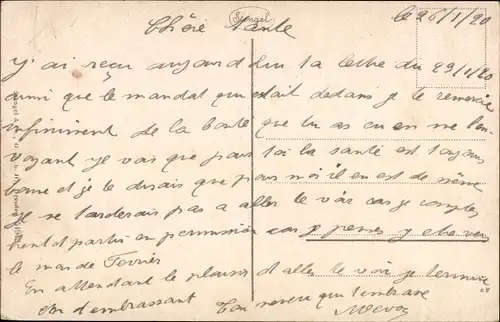 Stengel
le 26/1/20
Chère Tante
J'ai reçu aujourd'hui ta lettre du 23/1/20
ainsi que le mandat qui était dedans je te remercie
infiniment de la bonté que tu as eu en me l'en
voyant je vois que pour toi la santé est toujours
bonne et je te dirais que pour moi il en est de même
Je ne tarderais pas a aller te voir car je compte
bientôt partir en permission car je pense y etre vers
le mois de Fevrier
En attendant le plaisir d'aller te voir je termine
en t'embrassant Ton neveu qui t'embrasse